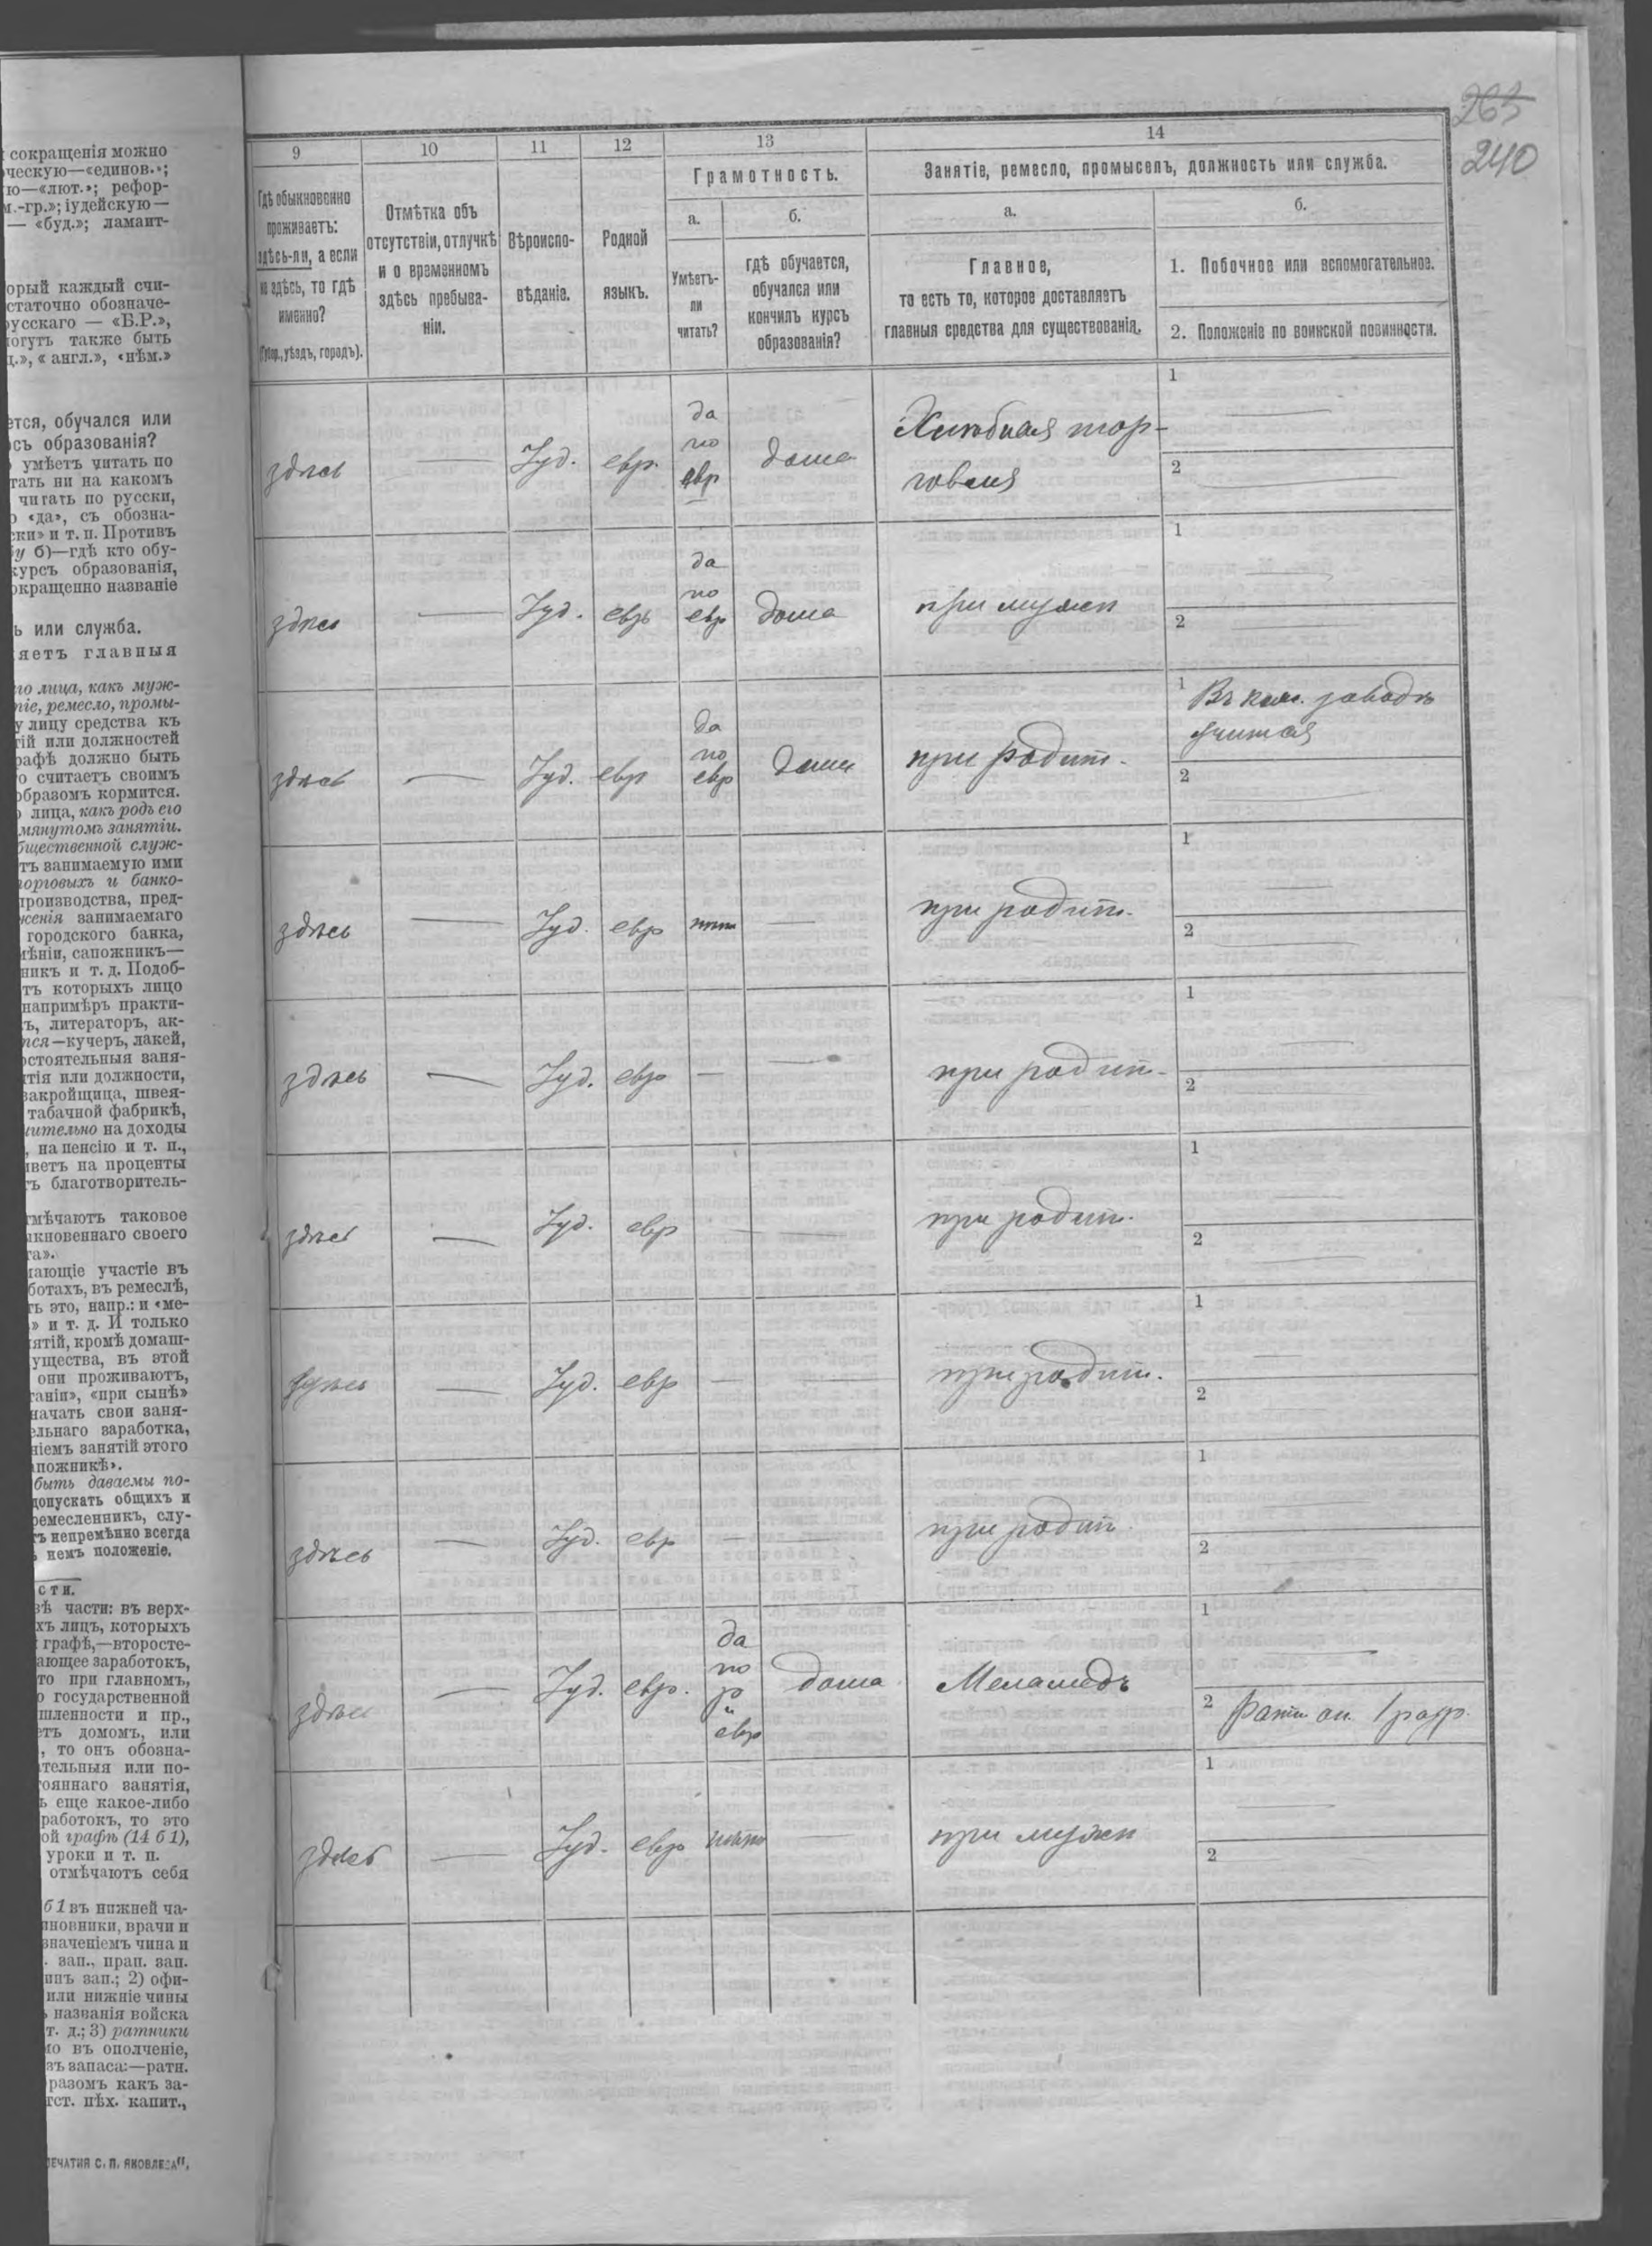 сокращенія можно
ческую—«единов.»;
ю—«лют.»; рефор-
м.-гр.»; іудейскую—
— «буд.»; ламаит-
орый каждый счи-
статочно обозначе-
русскаго — «Б.Р.»,
могутъ также быть
ц.», « англ.», «нѣм.»
ется, обучался или
съ образованія?
умѣетъ читать по
тать ни на какомъ
читать по русски,
о «да», съ обозна-
ски» и т. п. Противъ
у б)—гдѣ кто обу-
курсъ образованія,
окращенно названіе
ь или служба.
яетъ главныя
го лица, какъ муж-
тіе, ремесло, промы-
у лицу средства къ
тій или должностей
рафѣ должно быть
о считаетъ своимъ
образомъ кормится.
лица, какъ родъ его
мянутомъ занятіи.
бщественной служ-
тъ занимаемую ими
торговыхъ и банко-
производства, пред-
женія занимаемаго
городского банка,
мѣніи, сапожникъ—
никъ и т. д. Подоб-
тъ которыхъ лицо
напримѣръ практи-
ъ, литераторъ, ак-
тся—кучеръ, лакей,
остоятельныя заня-
тія или должности,
закройщица, швея-
табачной фабрикѣ,
чительно на доходы
, на пенсію и т. п.,
иветъ на проценты
ъ благотворитель-
тмѣчаютъ таковое
ыкновеннаго своего
та».
мающіе участіе въ
ботахъ, въ ремеслѣ,
ть это, напр.: и «ме-
» и т. д. И только
нятій, кромѣ домаш-
ущества, въ этой
они проживаютъ,
таніи», «при сынѣ»
начать свои заня-
ельнаго заработка,
ніемъ занятій этого
апожникѣ».
быть даваемы по-
допускать общихъ и
ремесленникъ, слу-
тъ непремѣнно всегда
немъ положеніе.
сти.
вѣ части: въ верх-
хъ лицъ, которыхъ
графѣ,—второсте-
ающее заработокъ,
то при главномъ,
о государственной
шленности и пр.,
етъ домомъ, или
, то онъ обозна-
ательныя или по-
тояннаго занятія,
ь еще какое-либо
работокъ, то это
ой графѣ (14 б 1),
уроки и т. п.
отмѣчаютъ себя
б 1 въ нижней ча-
иновники, врачи и
значеніемъ чина и
. зап., прап. зап.
инъ зап.; 2) офи-
или нижніе чины
названія войска
т. д.; 3) ратники
мо въ ополченіе,
зъ запаса:—ратн.
разомъ какъ за-
тст. пѣх. капит.,
ПЕЧАТНЯ С. П. ЯКОВЛЕВА",
265
240
9 10 11 12 13 14
Гдѣ обыкновенно
проживаетъ:
здѣсь-ли, а если
не здѣсь, то гдѣ
именно?
(Губер., уѣздъ, городъ).
Отмѣтка объ
отсутствіи, отлучкѣ
и о временномъ
здѣсь пребыва-
ніи.
Вѣроиспо-
вѣданіе.
Родной
языкъ.
Грамотность.
а.
Умѣетъ-
ли
читать?
б.
гдѣ обучается,
обучался или
кончилъ курсъ
образованія?
Занятіе, ремесло, промыселъ, должность или служба.
а.
Главное,
то есть то, которое доставляетъ
главныя средства для существованія.
б.
1. Побочное или вспомогательное.
2. Положеніе по воинской повинности.
здѣсь — Іуд. евр. да по евр дома Хлѣбная тор-
говля 1 — 2 —
здѣсь — Іуд. евр да по евр дома при мужѣ 1 — 2 —
здѣсь — Іуд. евр да по евр дома при родит. 1 Въ заводѣ
2 —
здѣсь — Іуд. евр нѣтъ — при родит. 1 — 2 —
здѣсь — Іуд. евр — — при родит. 1 — 2 —
здѣсь — Іуд. евр — — при родит. 1 — 2 —
здѣсь — Іуд. евр — — при родит. 1 — 2 —
здѣсь — Іуд. евр — — при родит. 1 — 2 —
здѣсь — Іуд. евр. да по р и евр дома Меламедъ 1 — 2 Ратн оп. 1 разр.
здѣсь — Іуд. евр нѣтъ — при мужѣ 1 — 2 —